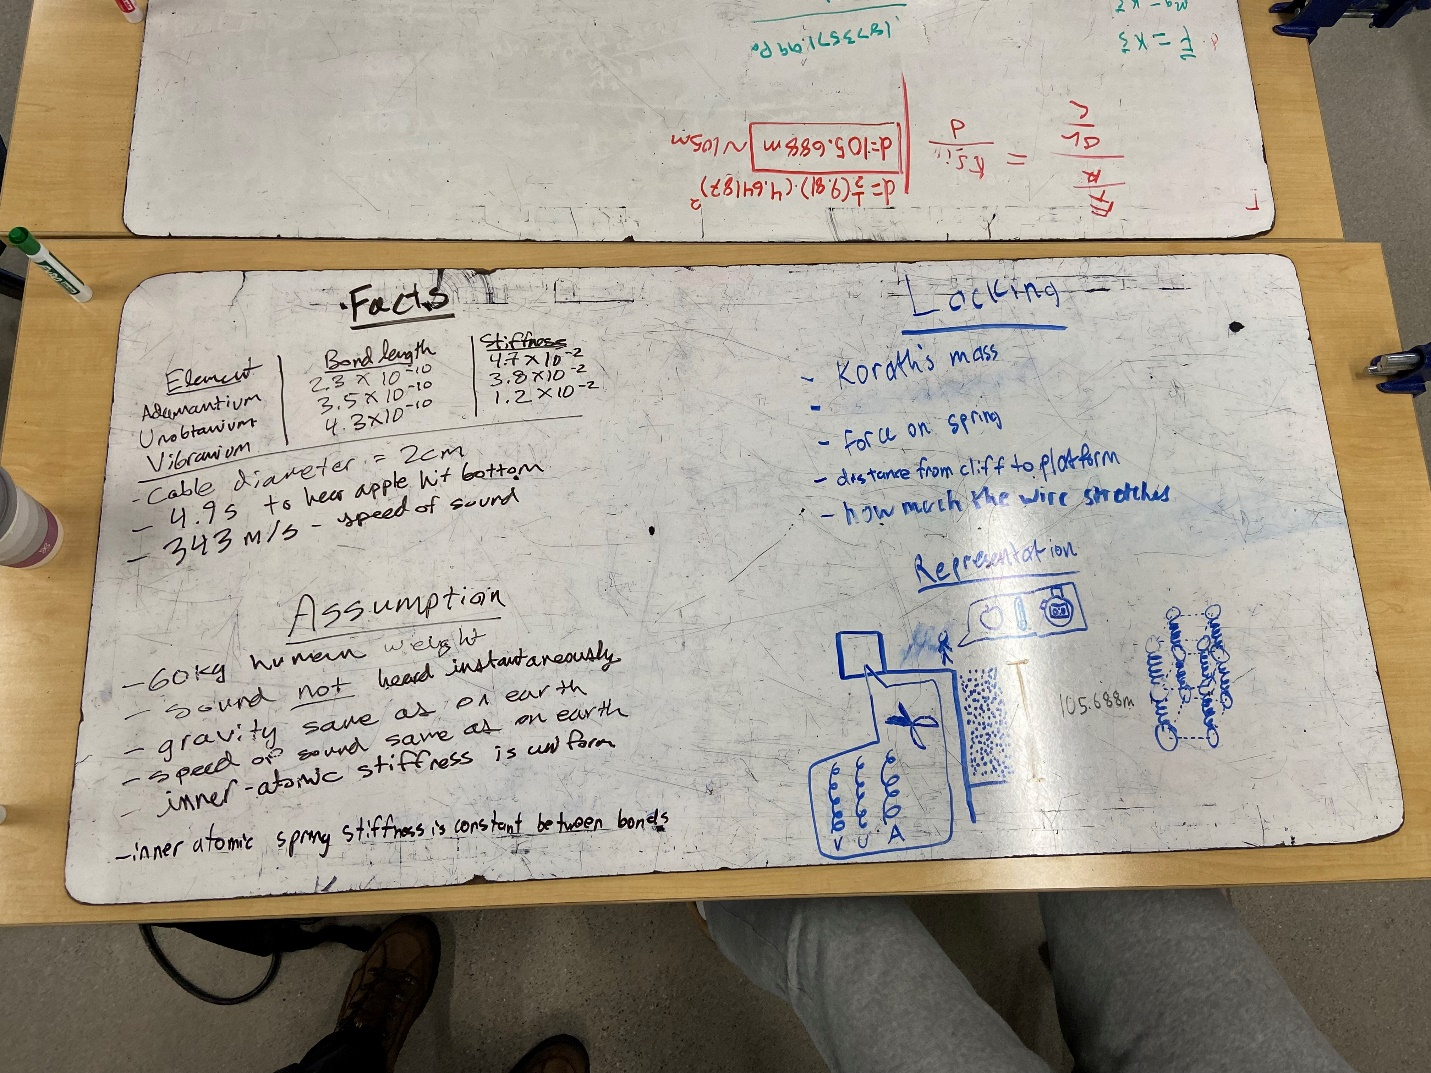 1873571.99 Pa
F = k
d=½(9.81)·(4.64187)²
d=105.688m ~105m
=
d
Facts
Element
Bond length
Stiffness
Adamantium
2.3 × 10⁻¹⁰
4.7 × 10⁻²
Unobtanium
3.5 × 10⁻¹⁰
3.8 × 10⁻²
Vibranium
4.3 × 10⁻¹⁰
1.2 × 10⁻²
- Cable diameter = 2cm
- 4.9s to hear apple hit bottom
- 343 m/s - speed of sound
Assumption
- 60kg human weight
- sound not heard instantaneously
- gravity same as on earth
- speed of sound same as on earth
- inner-atomic stiffness is uniform
- inner atomic spring stiffness is constant between bonds
Lacking
- Korath's mass
-
- force on spring
- distance from cliff to platform
- how much the wire stretches
Representation
105.688m
V U A